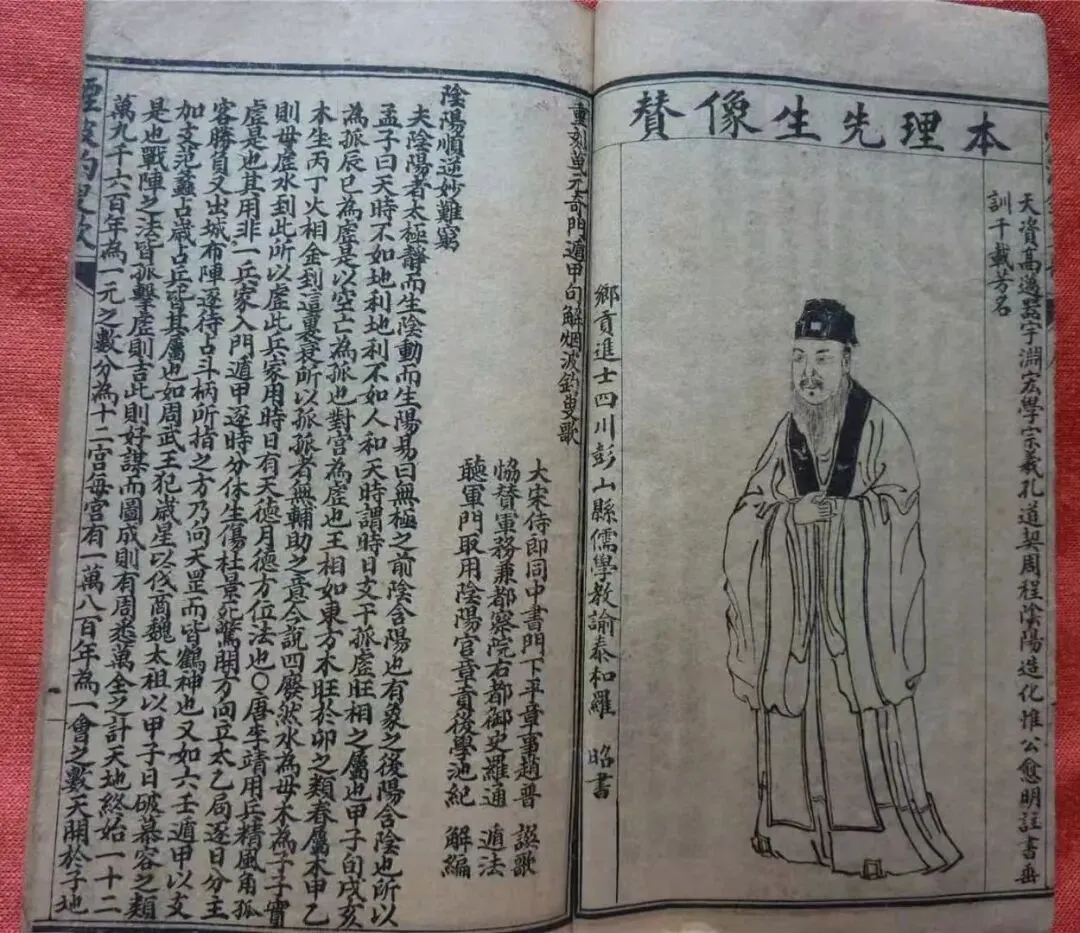 本理先生像贊
天資高邁器宇淵宏學宗羲孔道契周程陰陽造化惟公愈明註書垂
訓千載芳名
鄉貢進士四川彭山縣儒學教諭泰和羅 昭書
重刻萬元奇門遁甲句解烟波釣叟歌
大宋侍郎同中書門下平章事趙普 譔歌
恊贊軍務兼都察院右都御史羅通 遁法
聽軍門取用陰陽官章貢後學池紀 解編
陰陽順逆妙難窮
夫陰陽者太極靜而生陰動而生陽易曰無極之前陰含陽也有象之後陽含陰也所以
孟子曰天時不如地利地利不如人和天時謂時日支干孤虛旺相之屬也甲子旬戌亥
為孤辰巳為虛是以空亡為孤也對宮為虛也王相如東方木旺於卯之類春屬木甲乙
本生丙丁火相金到這裏衰所以孤孤者無輔助之意今說四廢然水為母木為子子實
則母虛水到此所以虛此兵家用時日有天德月德方位法也○唐李靖用兵精風角孤
虛是也其用非一兵家入門遁甲逐時分休生傷杜景死驚開方向立太乙局逐日分主
客勝負又出城布陣逐待占斗柄所指之方乃向天罡而皆鶴神也又如六壬遁甲以支
加支范蠡占歲占兵皆其屬也如周武王犯歲星以伐商魏太祖以甲子日破慕容之類
是也戰陣之法皆孤擊虛則吉此則好謀而圖成則有周悉萬全之計天地終始一十二
萬九千六百年為一元之數分為十二宮每宮有一萬八百年為一會之數天開於子地